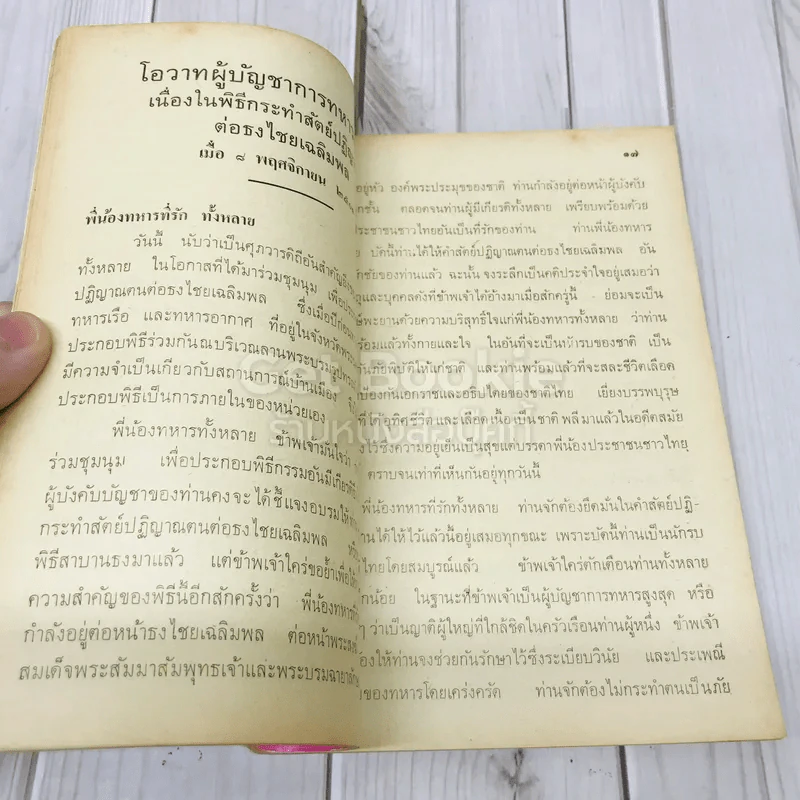 โอวาทผู้บัญชาการทหาร
เนื่องในพิธีกระทำสัตย์ปฏิญ
ต่อธงไชยเฉลิมพล
เมื่อ ๘ พฤศจิกายน
พี่น้องทหารที่รัก ทั้งหลาย
วันนี้ นับว่าเป็นศุภวารดิถีอันสำคัญ
ทั้งหลาย ในโอกาสที่ได้มาร่วมชุมนุม
ปฏิญาณตนต่อธงไชยเฉลิมพล ซึ่งเมื่อปีก่อน
ทหารเรือ และทหารอากาศ ที่อยู่ในจังหวัด
ประกอบพิธีร่วมกันณบริเวณลานพระบรมรูป
มีความจำเป็นเกี่ยวกับสถานการณ์บ้านเมือง
ประกอบพิธีเป็นการภายในของหน่วยเอง
พี่น้องทหารทั้งหลาย ข้าพเจ้ามั่นใจว่า
ร่วมชุมนุม เพื่อประกอบพิธีกรรมอันมีเกียรติ
ผู้บังคับบัญชาของท่านคงจะได้ชี้แจงอบรมให้
กระทำสัตย์ปฏิญาณตนต่อธงไชยเฉลิมพล
พิธีสาบานธงมาแล้ว แต่ข้าพเจ้าใคร่ขอย้ำเพื่อ
ความสำคัญของพิธีนี้อีกสักครั้งว่า พี่น้องทหาร
กำลังอยู่ต่อหน้าธงไชยเฉลิมพล ต่อหน้าพระ
สมเด็จพระสัมมาสัมพุทธเจ้าและพระบรมฉายาลักษ
๑๗
อยู่หัว องค์พระประมุขของชาติ ท่านกำลังอยู่ต่อหน้าผู้บังคับ
ตลอดจนท่านผู้มีเกียรติทั้งหลาย เพรียบพร้อมด้วย
ประชาชนชาวไทยอันเป็นที่รักของท่าน ท่านพี่น้องทหาร
บัดนี้ท่านได้ให้คำสัตย์ปฏิญาณตนต่อธงไชยเฉลิมพล อัน
ของท่านแล้ว ฉะนั้น จงระลึกเป็นคติประจำใจอยู่เสมอว่า
และบุคคลดังที่ข้าพเจ้าได้อ้างมาเมื่อสักครู่นี้ ย่อมจะเป็น
พะยานด้วยความบริสุทธิ์ใจแก่พี่น้องทหารทั้งหลาย ว่าท่าน
พร้อมแล้วทั้งกายและใจ ในอันที่จะเป็นทหารของชาติ เป็น
ภัยพิบัติให้แก่ชาติ และท่านพร้อมแล้วที่จะสละชีวิตเลือด
เอกราชและอธิปไตยของชาติไทย เยี่ยงบรรพบุรุษ
ที่ได้อุทิศชีวิต และเลือดเนื้อเป็นชาติพลีมาแล้วในอดีตสมัย
ไว้ซึ่งความอยู่เย็นเป็นสุขแต่บรรดาพี่น้องประชาชนชาวไทย
ตราบจนเท่าที่เห็นกันอยู่ทุกวันนี้
พี่น้องทหารที่รักทั้งหลาย ท่านจักต้องยึดมั่นในคำสัตย์ปฏิ-
ได้ให้ไว้แล้วนี้อยู่เสมอทุกขณะ เพราะบัดนี้ท่านเป็นนักรบ
ไทยโดยสมบูรณ์แล้ว ข้าพเจ้าใคร่ตักเตือนท่านทั้งหลาย
น้อย ในฐานะที่ข้าพเจ้าเป็นผู้บัญชาการทหารสูงสุด หรือ
ว่าเป็นญาติผู้ใหญ่ที่ใกล้ชิดในครัวเรือนท่านผู้หนึ่ง ข้าพเจ้า
ให้ท่านจงช่วยกันรักษาไว้ซึ่งระเบียบวินัย และประเพณี
ของทหารโดยเคร่งครัด ท่านจักต้องไม่กระทำตนเป็นภัย
Get Bookie